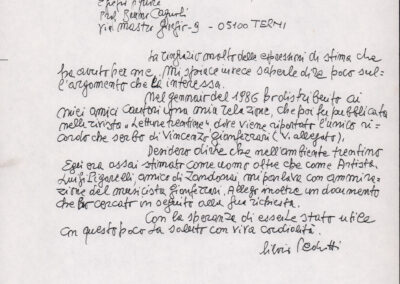 Prof. Bruno Cagnoli
via Mastro Giorgio-9 - 05100 TERNI
La ringrazio molto delle espressioni di stima che
ha avuto per me. Mi spiace invece saperle dire poco sul-
l'argomento che le interessa.
Nel gennaio del 1986 ho distribuito ai
miei amici Cantori una mia relazione, che poi fu pubblicata
nella rivista "Lettura trentina" dove viene riportato l'unico ri-
cordo che serbo di Vincenzo Gianferrari (V. allegato).
Desidero dirle che nell'ambiente trentino
Egli era assai stimato come uomo oltre che come Artista.
Luigi Pigarelli, amico di Zandonai, mi parlava con ammira-
zione del musicista Gianferrari. Allego inoltre un documento
che ho cercato in seguito alla Sua richiesta.
Con la speranza di esserle stato utile
in questo poco La saluto con viva cordialità.
Silvio Pedrotti